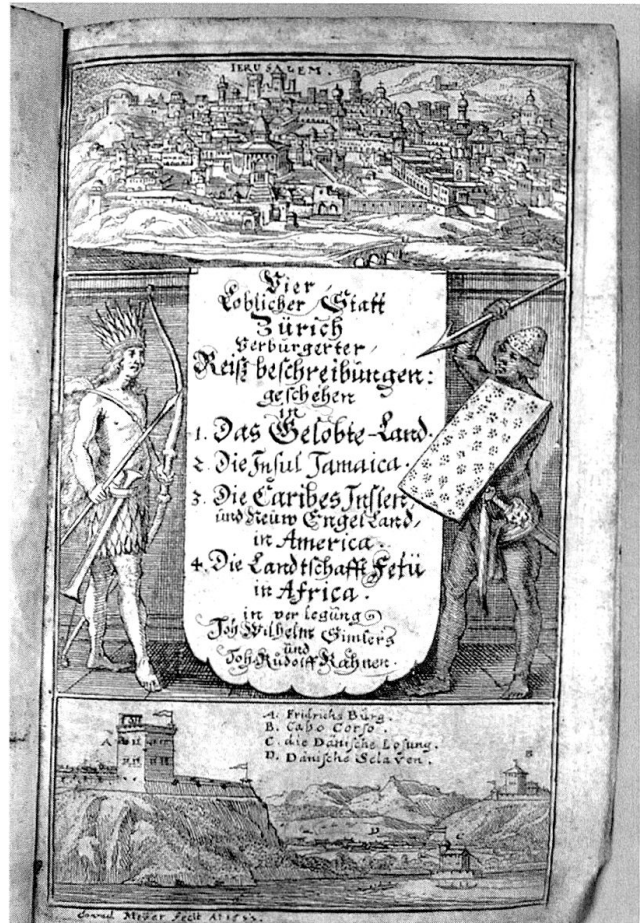 IERUSALEM.
Vier
Loblicher Statt
Zürich
Verburgerter
Reiß beschreibungen:
geschehen
in
1. Das Gelobte-Land.
2. Die Insul Jamaica.
3. Die Caribes Inslen
und Neuw Engel Land,
in America.
4. Die Landtschafft Fetü
in Africa.
in verlegung
Joh Wilhelm Simlers
und
Joh Rudolff Rahnen.
A. Fridrichs Burg.
B. Cabo Corso.
C. die Dänische Losung.
D. Dänische Sclaven.
A
B
C
D
Conrad Meyer fecit A: